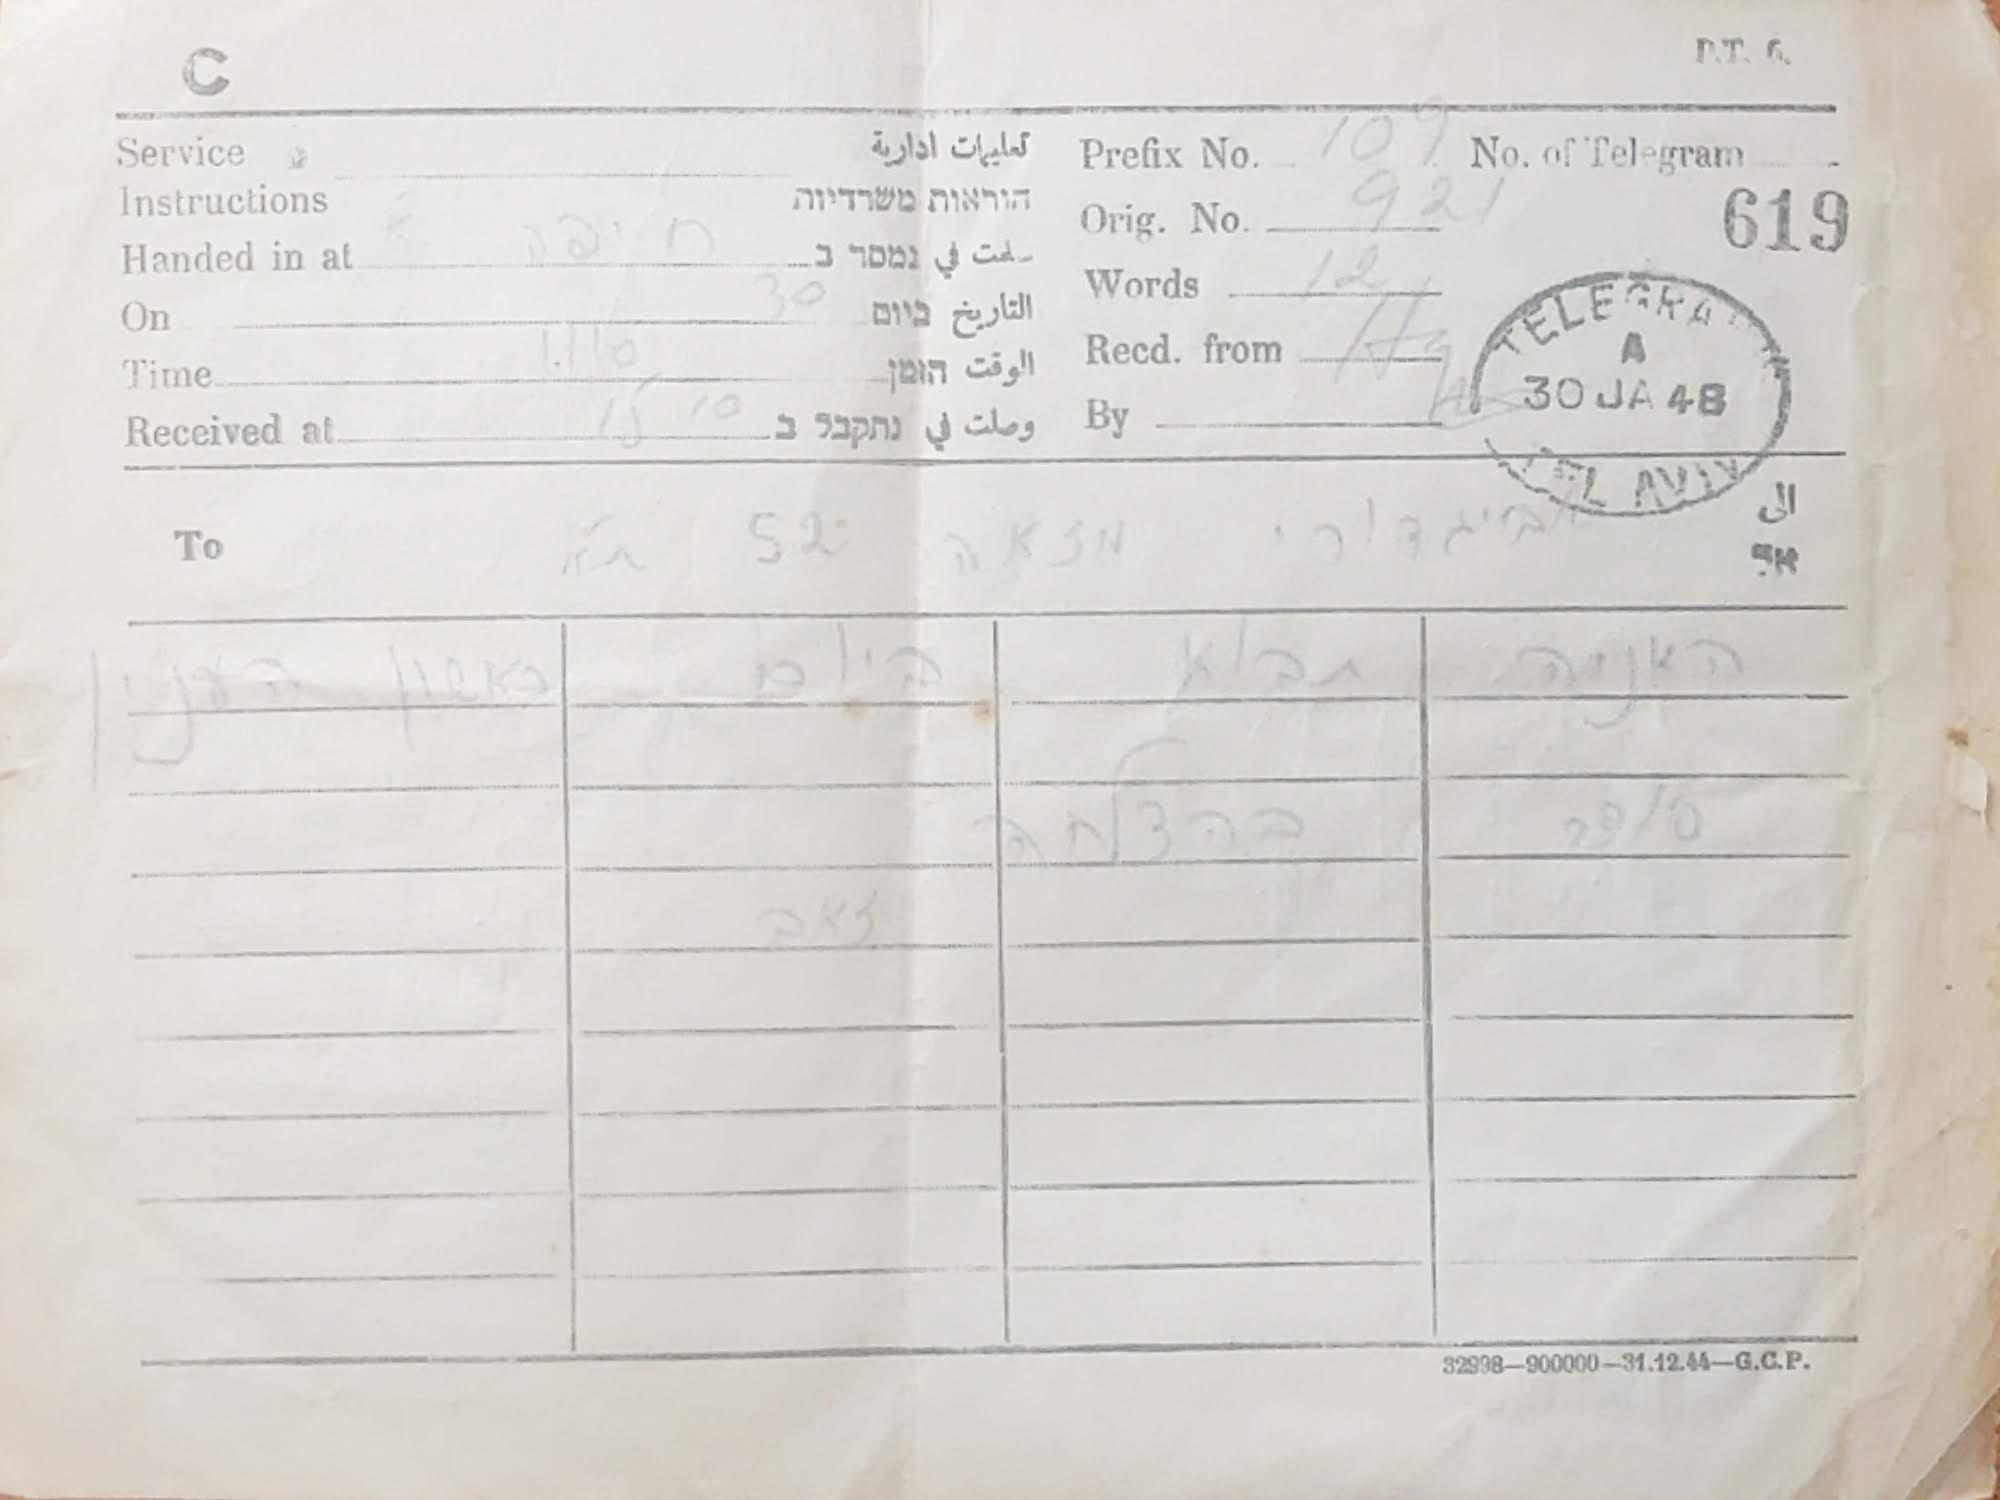 C
P.T. 6.
Service تعليمات ادارية
Instructions הוראות משרדיות
Handed in at חיפה سلمت في נמסר ב
On 30 التاريخ ביום
Time 1110 الوقت הזמן
Received at 15 10 وصلت في נתקבל ב
Prefix No. 109 No. of Telegram
Orig. No. 921
619
Words 12
Recd. from
By
TELEGRA
A
30 JA 48
TEL AVIV
To אביגדורי מזאה 52 ת"א الى
אל
האניה תבוא ביום ראשון הענין
סופר בהצלחה
זאב
32998—900000—31.12.44—G.C.P.